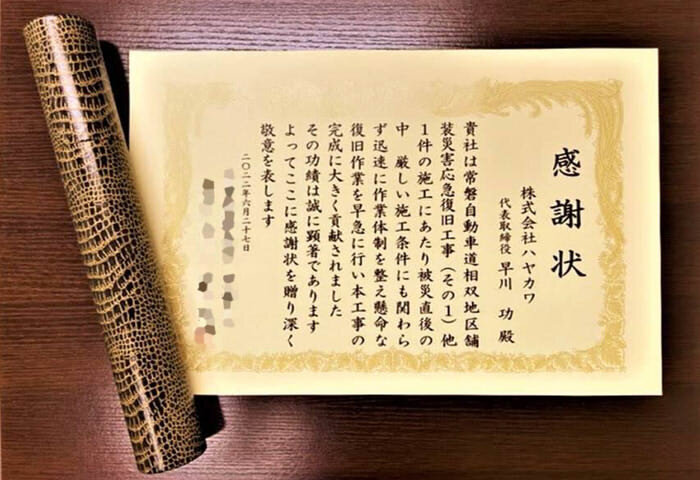 感謝状
株式会社ハヤカワ
代表取締役 早川 功 殿
貴社は常磐自動車道相双地区舗
装災害応急復旧工事(その1)他
1件の施工にあたり被災直後の
中 厳しい施工条件にも関わら
ず迅速に作業体制を整え懸命な
復旧作業を早急に行い本工事の
完成に大きく貢献されました
その功績は誠に顕著であります
よってここに感謝状を贈り深く
敬意を表します
二〇二二年六月二十七日